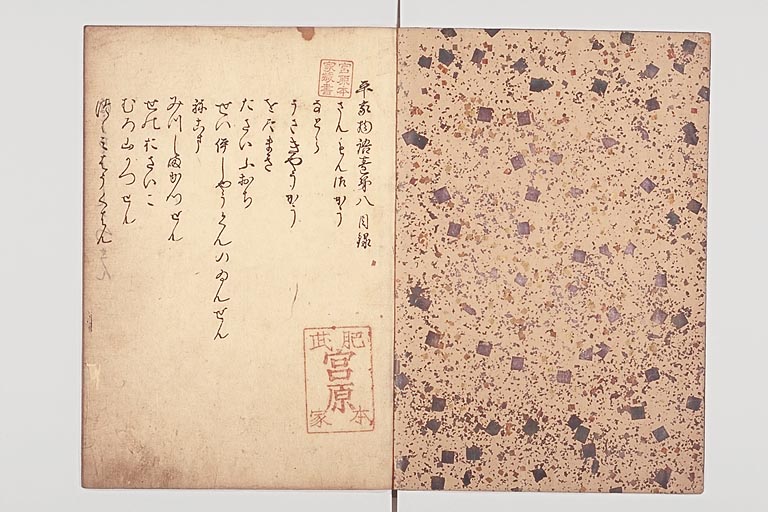 平家物語巻第八目録
さんもん御かう
なとら
うさきやうかう
をたまき
たさいふおち
せい伊しやうくんハゐんせん
ねこま
みつしまかつせん
せのおさいこ
むろ山かつせん
宮原本
家蔵書
肥武
宮原
本家